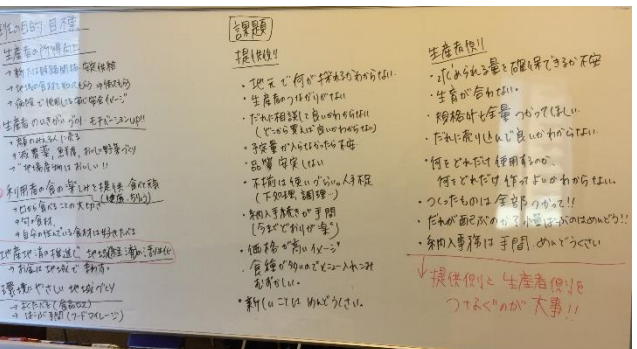 生産者の所得向上
生産者のいきがいづくり・モチベーションUP!!
→顔のみえる人に売る
→減農薬、
"地場産物はおいしい!!
利用者の食の楽しみを提供 食べて頂
→口から食べることの大切さ
→旬の食材、
→自分の住んでいる食材は好きだった
地産地消の推進じ 地域経済の活性化
→お金は地域で
環境にやさしい地域づくり
(フードマイレージ)
課題
提供側
・地元で何が採れるかわからない
・生産者のつながりがない
・だれに相談して良いかわからない
(どこから買えば良いかわからない)
・予定量が入らなかったら不安
・品質 安定しない
・不揃は使いづらい。人手不足
(下処理、調理…)
・納入手続きが手間
(今までどおりが楽)
・価格が高いイメージ
・食種が多いのでメニュー入れこみ
むずかしい。
・新しいことは めんどうくさい。
生産者側
・求められる量を確保できるか不安
・生育が合わない。
・規格外も全量つかってほしい。
・だれに売り込んで良いかわからない
・何をどれだけ使用するのか、
何をどれだけ作ってよいかわからない。
・つくったものは全部つかって!!
・だれが配ぶのか?小量はこぶのはめんどう!!
・納入事務は手間、めんどうくさい
↓提供側と生産者側を
つなぐのが大事!!